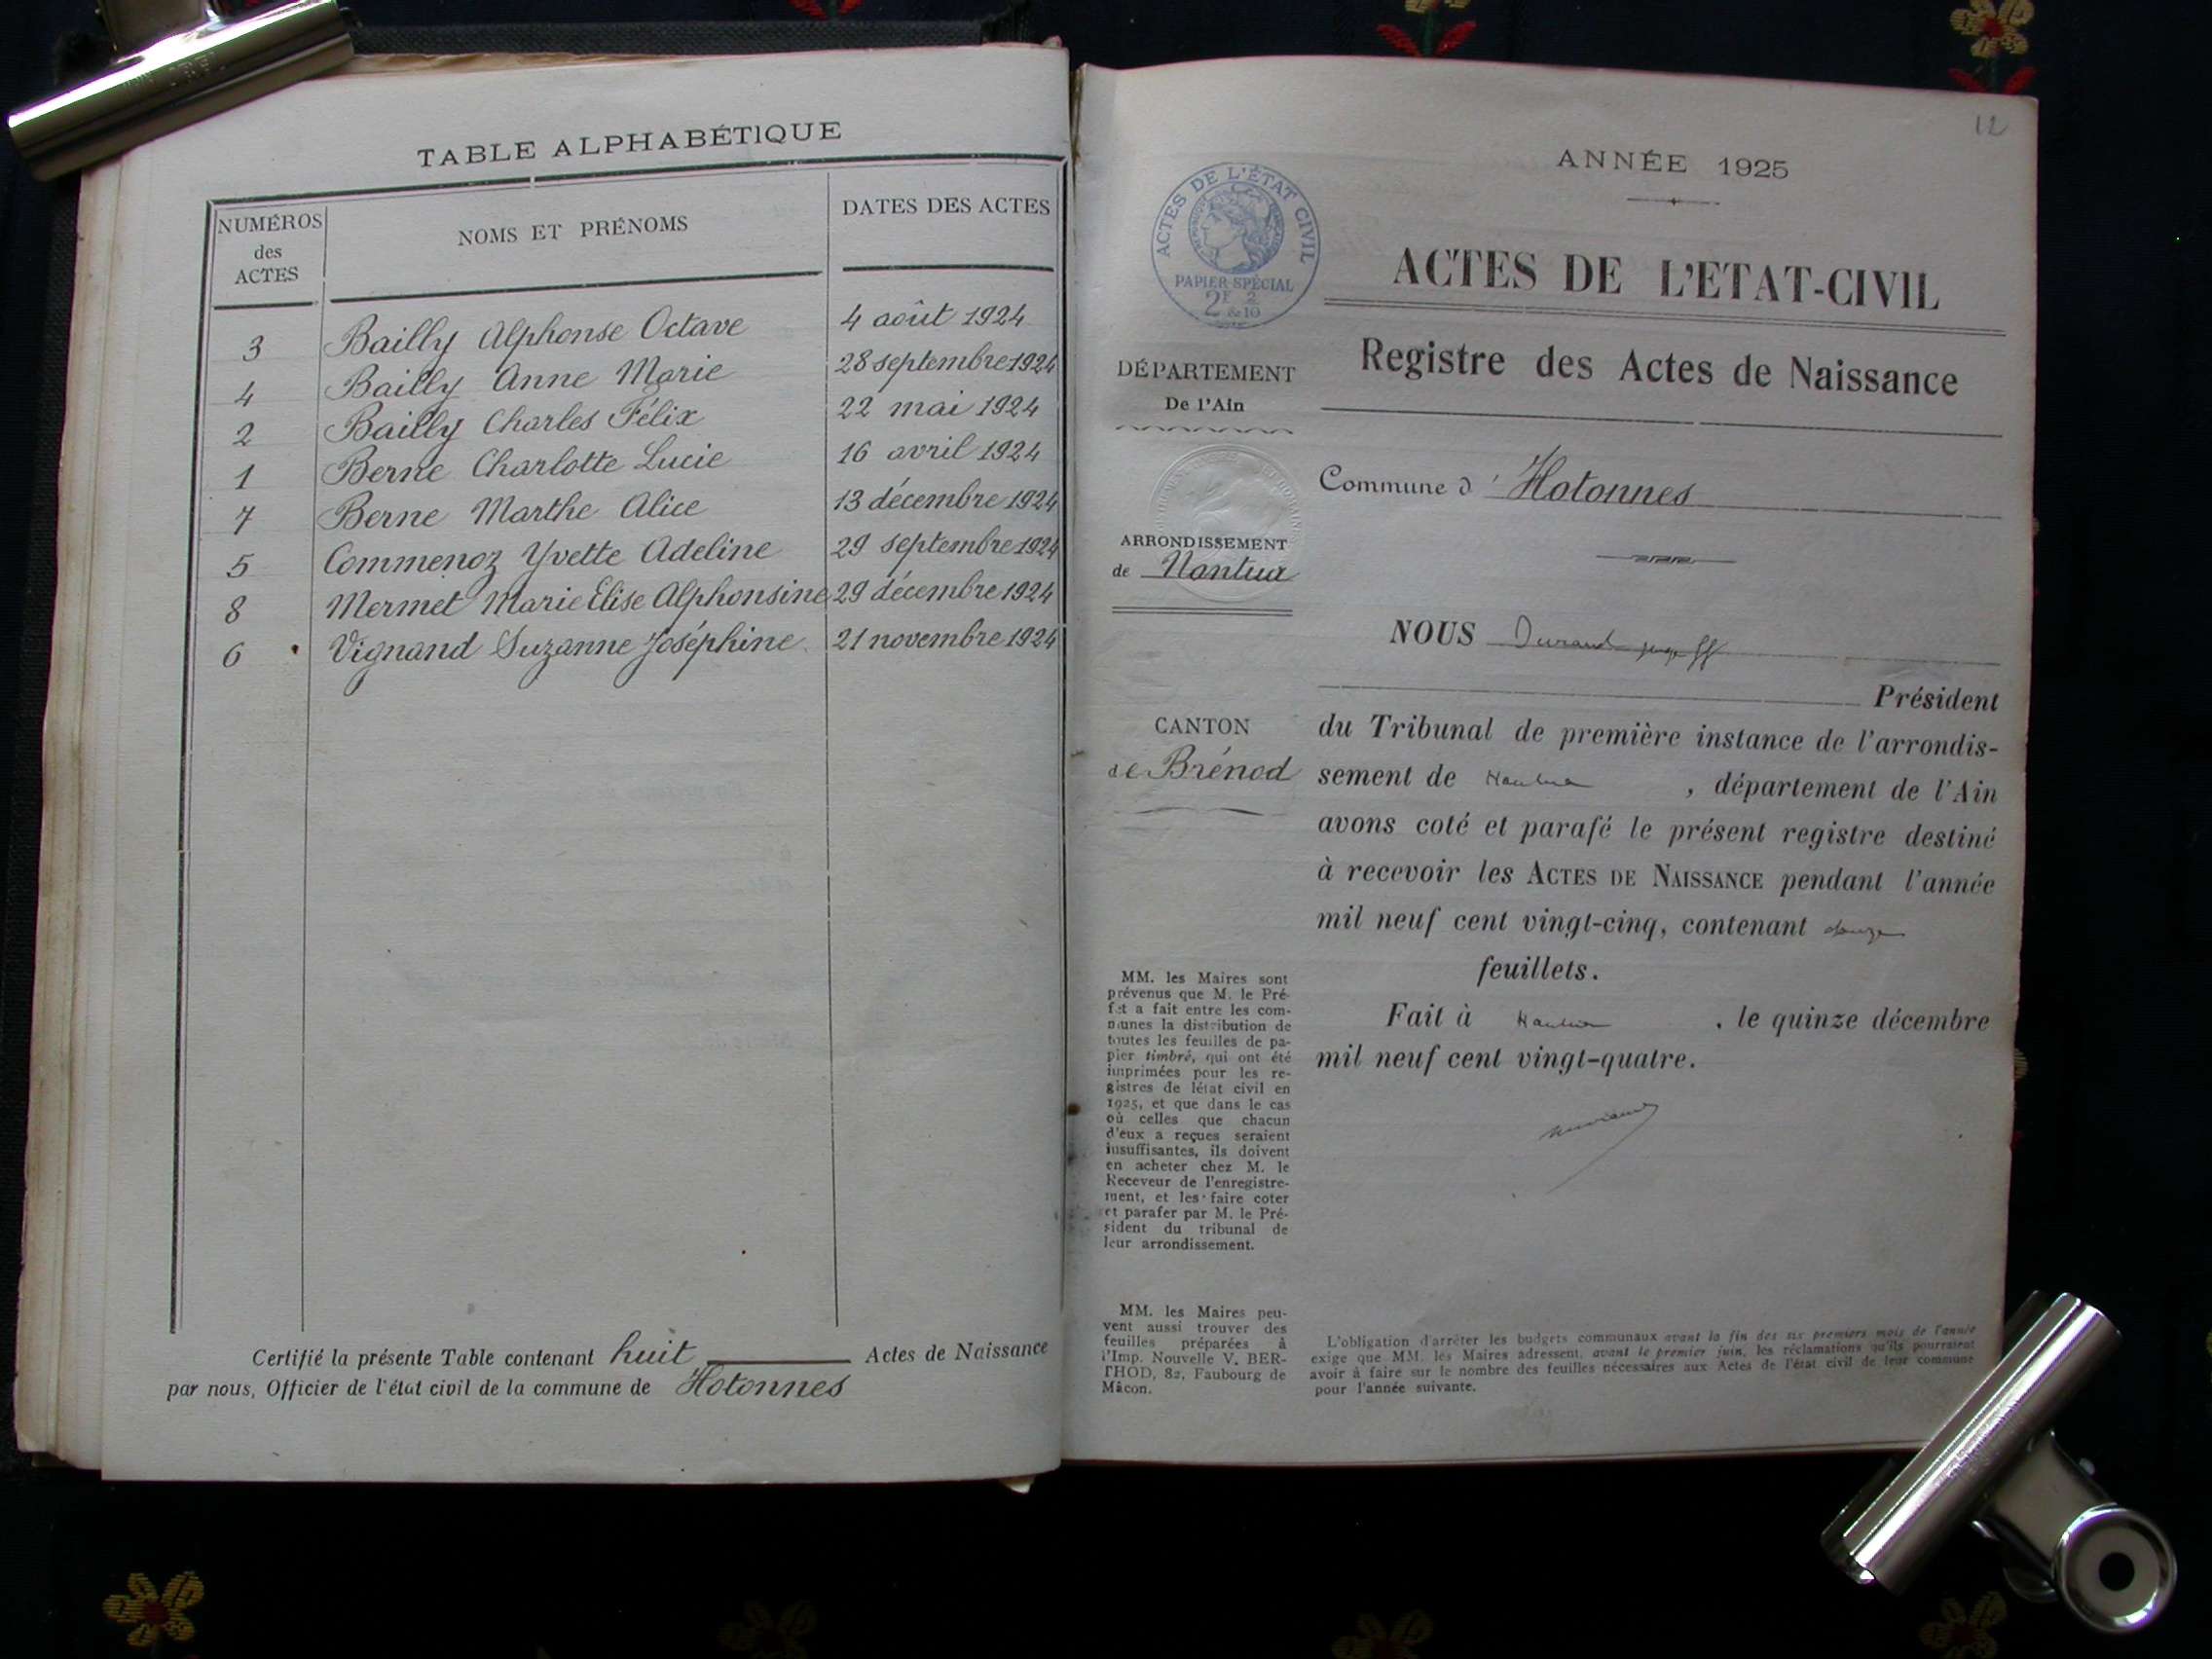 TABLE ALPHABÉTIQUE
NUMÉROS des ACTES
NOMS ET PRÉNOMS
DATES DES ACTES
3 Bailly Alphonse Octave 4 août 1924
4 Bailly Anne Marie 28 septembre 1924
2 Bailly Charles Félix 22 mai 1924
1 Berne Charlotte Lucie 16 avril 1924
7 Berne Marthe Alice 13 décembre 1924
5 Commenoz Yvette Adeline 29 septembre 1924
8 Mermet Marie Elise Alphonsine 29 décembre 1924
6 Vignand Suzanne Joséphine 21 novembre 1924
Certifié la présente Table contenant huit Actes de Naissance
par nous, Officier de l'état civil de la commune de Hotonnes
12
ANNÉE 1925
ACTES DE L'ÉTAT CIVIL
PAPIER SPÉCIAL
2F & 2/10
ACTES DE L'ETAT-CIVIL
Registre des Actes de Naissance
DÉPARTEMENT
De l'Ain
Commune d'Hotonnes
ARRONDISSEMENT
de Nantua
CANTON
de Brénod
NOUS Durand juge ff
Président
du Tribunal de première instance de l'arrondis-
sement de Nantua, département de l'Ain
avons coté et parafé le présent registre destiné
à recevoir les ACTES DE NAISSANCE pendant l'année
mil neuf cent vingt-cinq, contenant douze
feuillets.
Fait à Nantua, le quinze décembre
mil neuf cent vingt-quatre.
MM. les Maires sont
prévenus que M. le Pré-
fet a fait entre les com-
munes la distribution de
toutes les feuilles de pa-
pier timbré, qui ont été
imprimées pour les re-
gistres de létat civil en
1925, et que dans le cas
où celles que chacun
d'eux a reçues seraient
insuffisantes, ils doivent
en acheter chez M. le
Receveur de l'enregistre-
ment, et les faire coter
et parafer par M. le Pré-
sident du tribunal de
leur arrondissement.
MM. les Maires peu-
vent aussi trouver des
feuilles préparées à
l'Imp. Nouvelle V. BER-
THOD, 82, Faubourg de
Mâcon.
L'obligation d'arrêter les budgets communaux avant la fin des six premiers mois de l'année
exige que MM. les Maires adressent, avant le premier juin, les réclamations qu'ils pourraient
avoir à faire sur le nombre des feuilles nécessaires aux Actes de l'état civil de leur commune
pour l'année suivante.